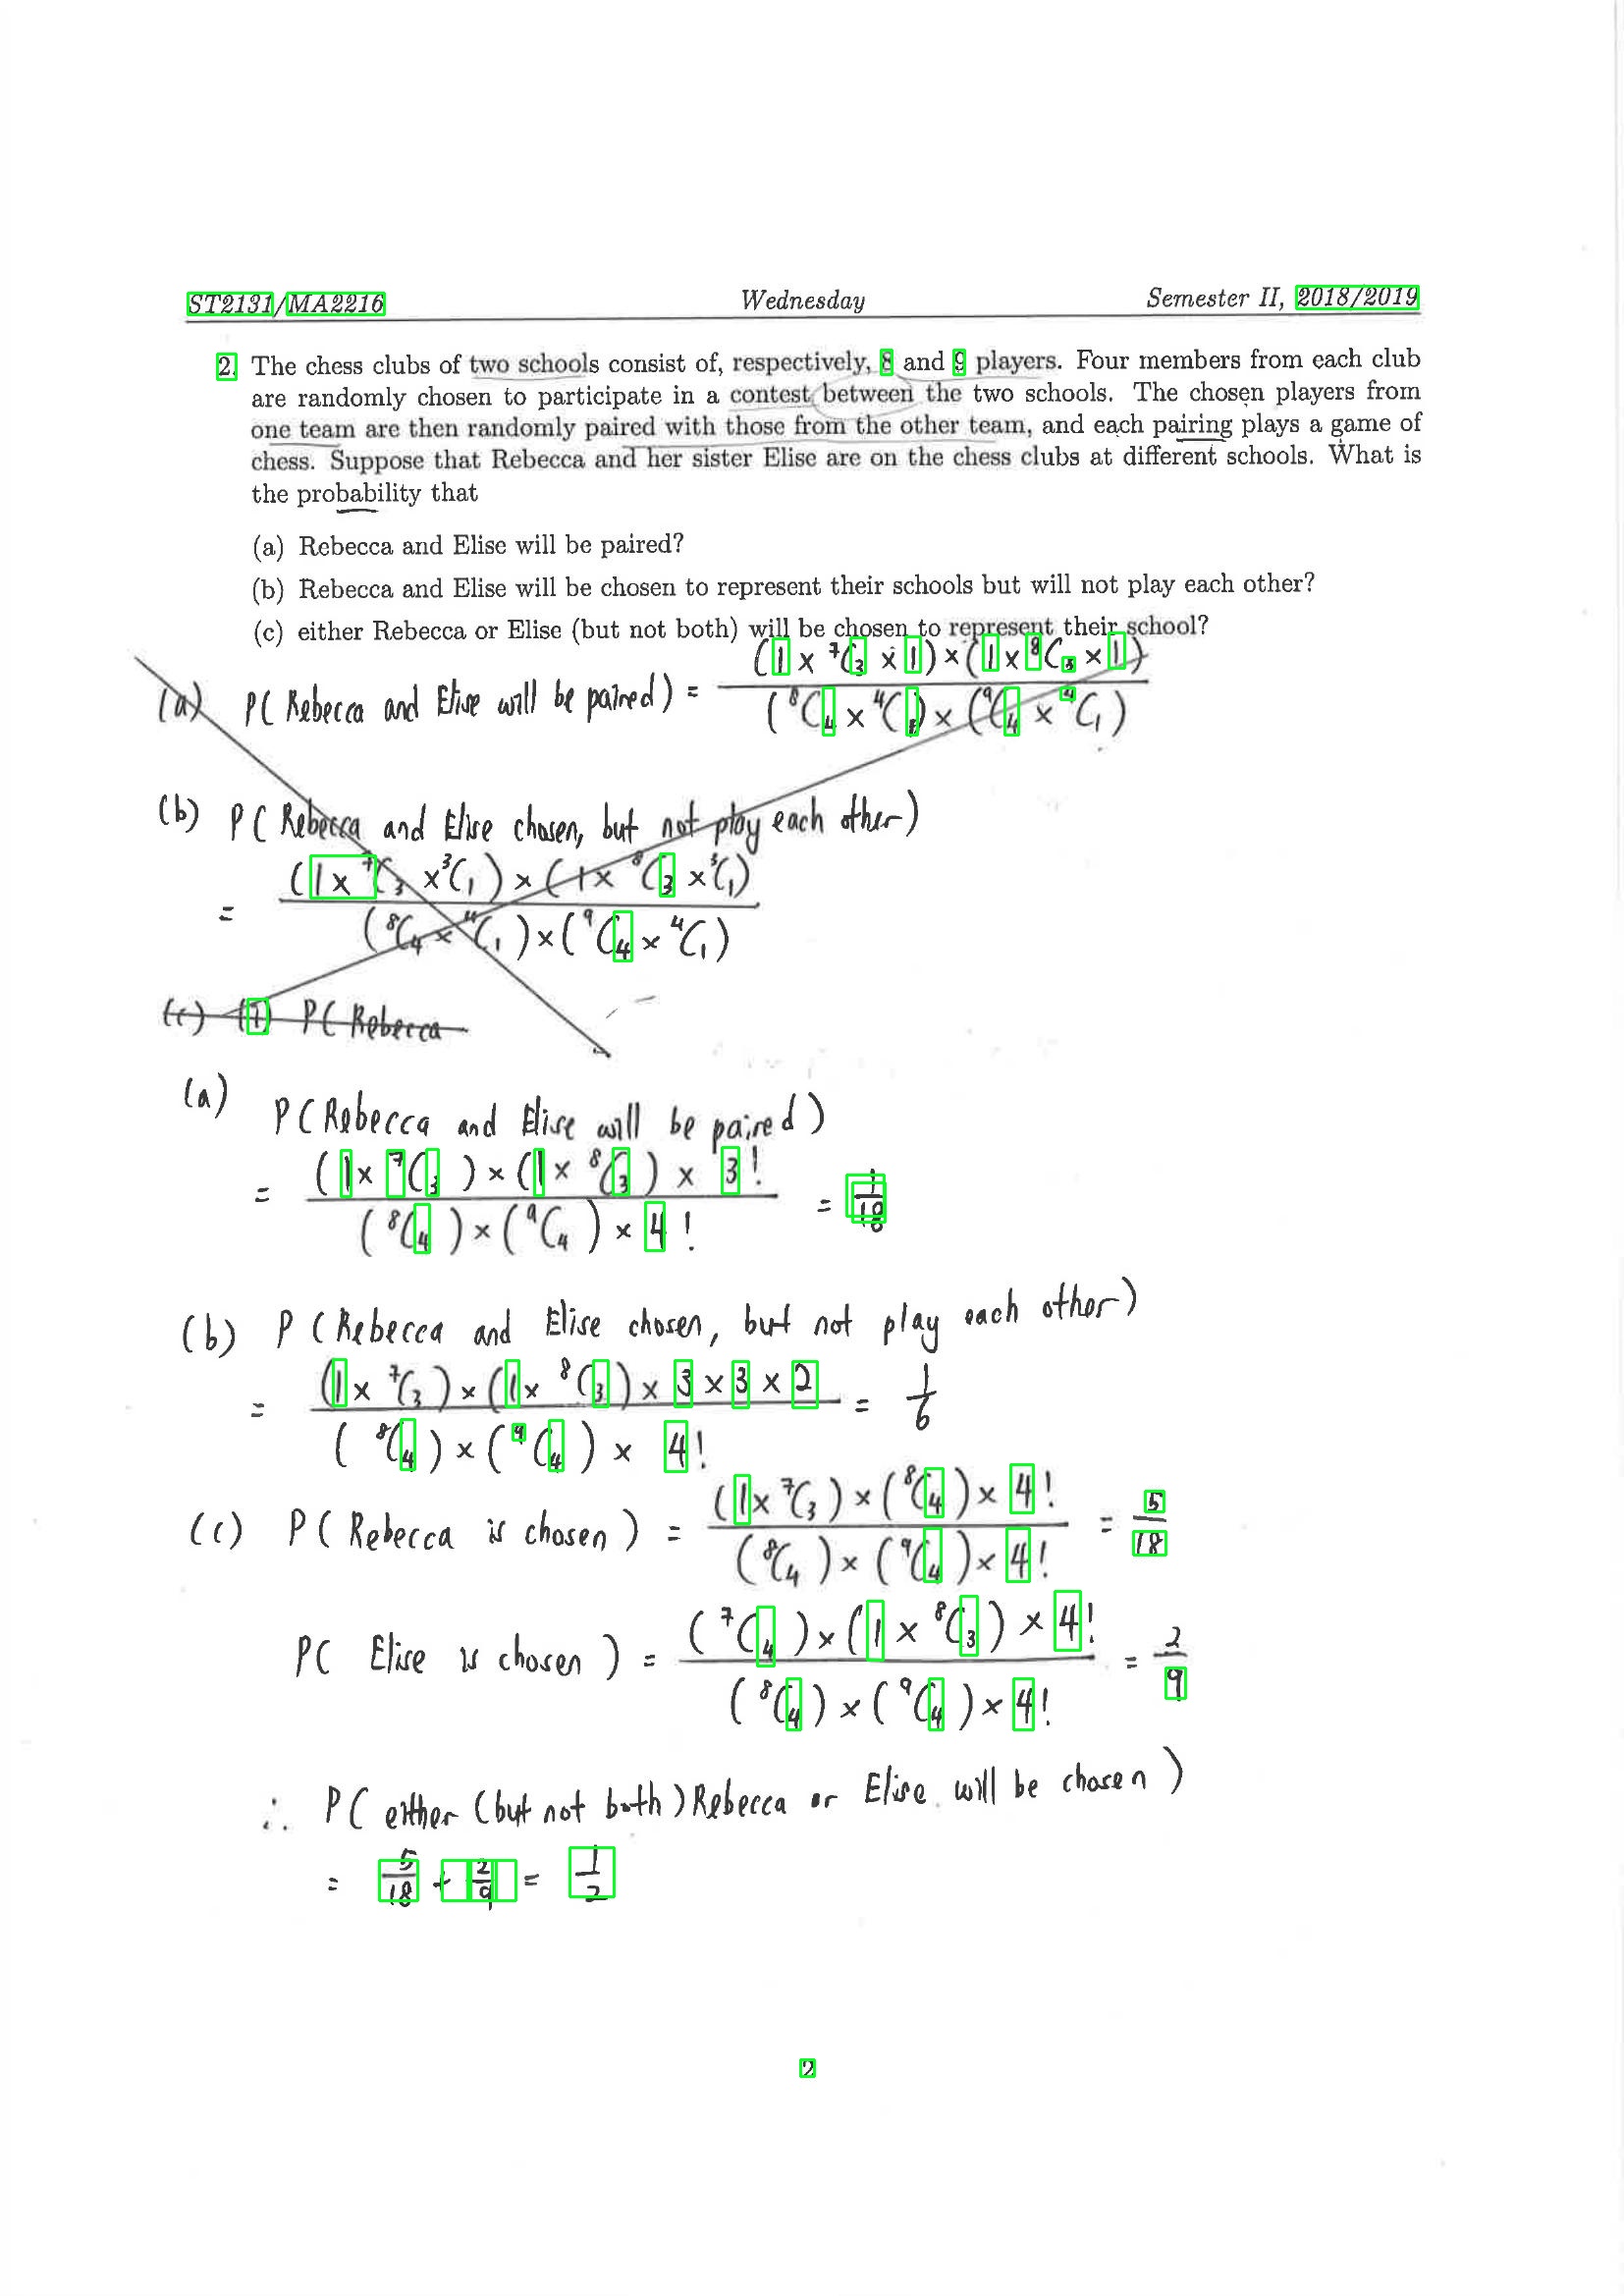 ST2131/MA2216 Wednesday Semester II, 2018/2019
2. The chess clubs of two schools consist of, respectively, 8 and 9 players. Four members from each club
are randomly chosen to participate in a contest between the two schools. The chosen players from
one team are then randomly paired with those from the other team, and each pairing plays a game of
chess. Suppose that Rebecca and her sister Elise are on the chess clubs at different schools. What is
the probability that
(a) Rebecca and Elise will be paired?
(b) Rebecca and Elise will be chosen to represent their schools but will not play each other?
(c) either Rebecca or Elise (but not both) will be chosen to represent their school?
(a) P( Rebecca and Elise will be paired ) = (1 × ⁷C₃ × 1) × (1 × ⁸C₃ × 1) / (⁸C₄ × ⁴C₁) × (⁹C₄ × ⁴C₁)
(b) P( Rebecca and Elise chosen, but not play each other)
= (1 × ⁷C₃ × ³C₁) × (1 × ⁸C₃ × ³C₁) / (⁸C₄ × ⁴C₁) × (⁹C₄ × ⁴C₁)
(c) P( Rebecca
(a) P( Rebecca and Elise will be paired )
= (1 × ⁷C₃) × (1 × ⁸C₃) × 3! / (⁸C₄) × (⁹C₄) × 4! = 1/18
(b) P ( Rebecca and Elise chosen, but not play each other)
= (1 × ⁷C₃) × (1 × ⁸C₃) × 3 × 3 × 2 / (⁸C₄) × (⁹C₄) × 4! = 1/6
(c) P ( Rebecca is chosen ) = (1 × ⁷C₃) × (⁸C₄) × 4! / (⁸C₄) × (⁹C₄) × 4! = 5/18
P( Elise is chosen ) = (⁷C₄) × (1 × ⁸C₃) × 4! / (⁸C₄) × (⁹C₄) × 4! = 2/9
∴ P( either (but not both) Rebecca or Elise will be chosen )
= 5/18 + 2/9 = 1/2
2